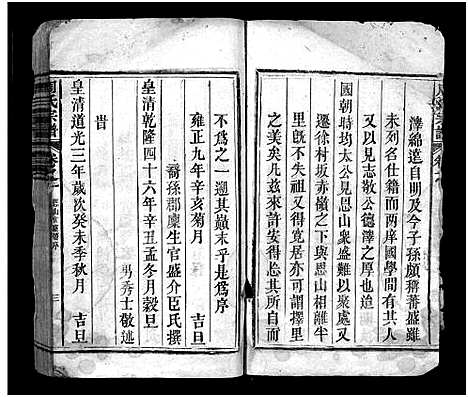 澤綿遠自明及今子孫頗稱蕃盛雖
未列名仕籍而兩庠國學間有其人
又以見志敬公德澤之厚也迨
國朝時均太公見恩山衆盛難以聚處又
遷徐村坂赤嶺之下與恩山相離半
里許不失祖又得寬居亦可謂擇里
而處其庶幾茲來許安得忘其所自而
不為之一遡其巔末乎是為序
雍正九年辛亥菊月 吉旦
裔孫郡廩生官盛介臣氏撰
皇清乾隆四十六年辛丑孟冬月穀旦
男秀士敬述
昔
皇清道光三年歲次癸未季秋月 吉旦
周氏宗譜
三